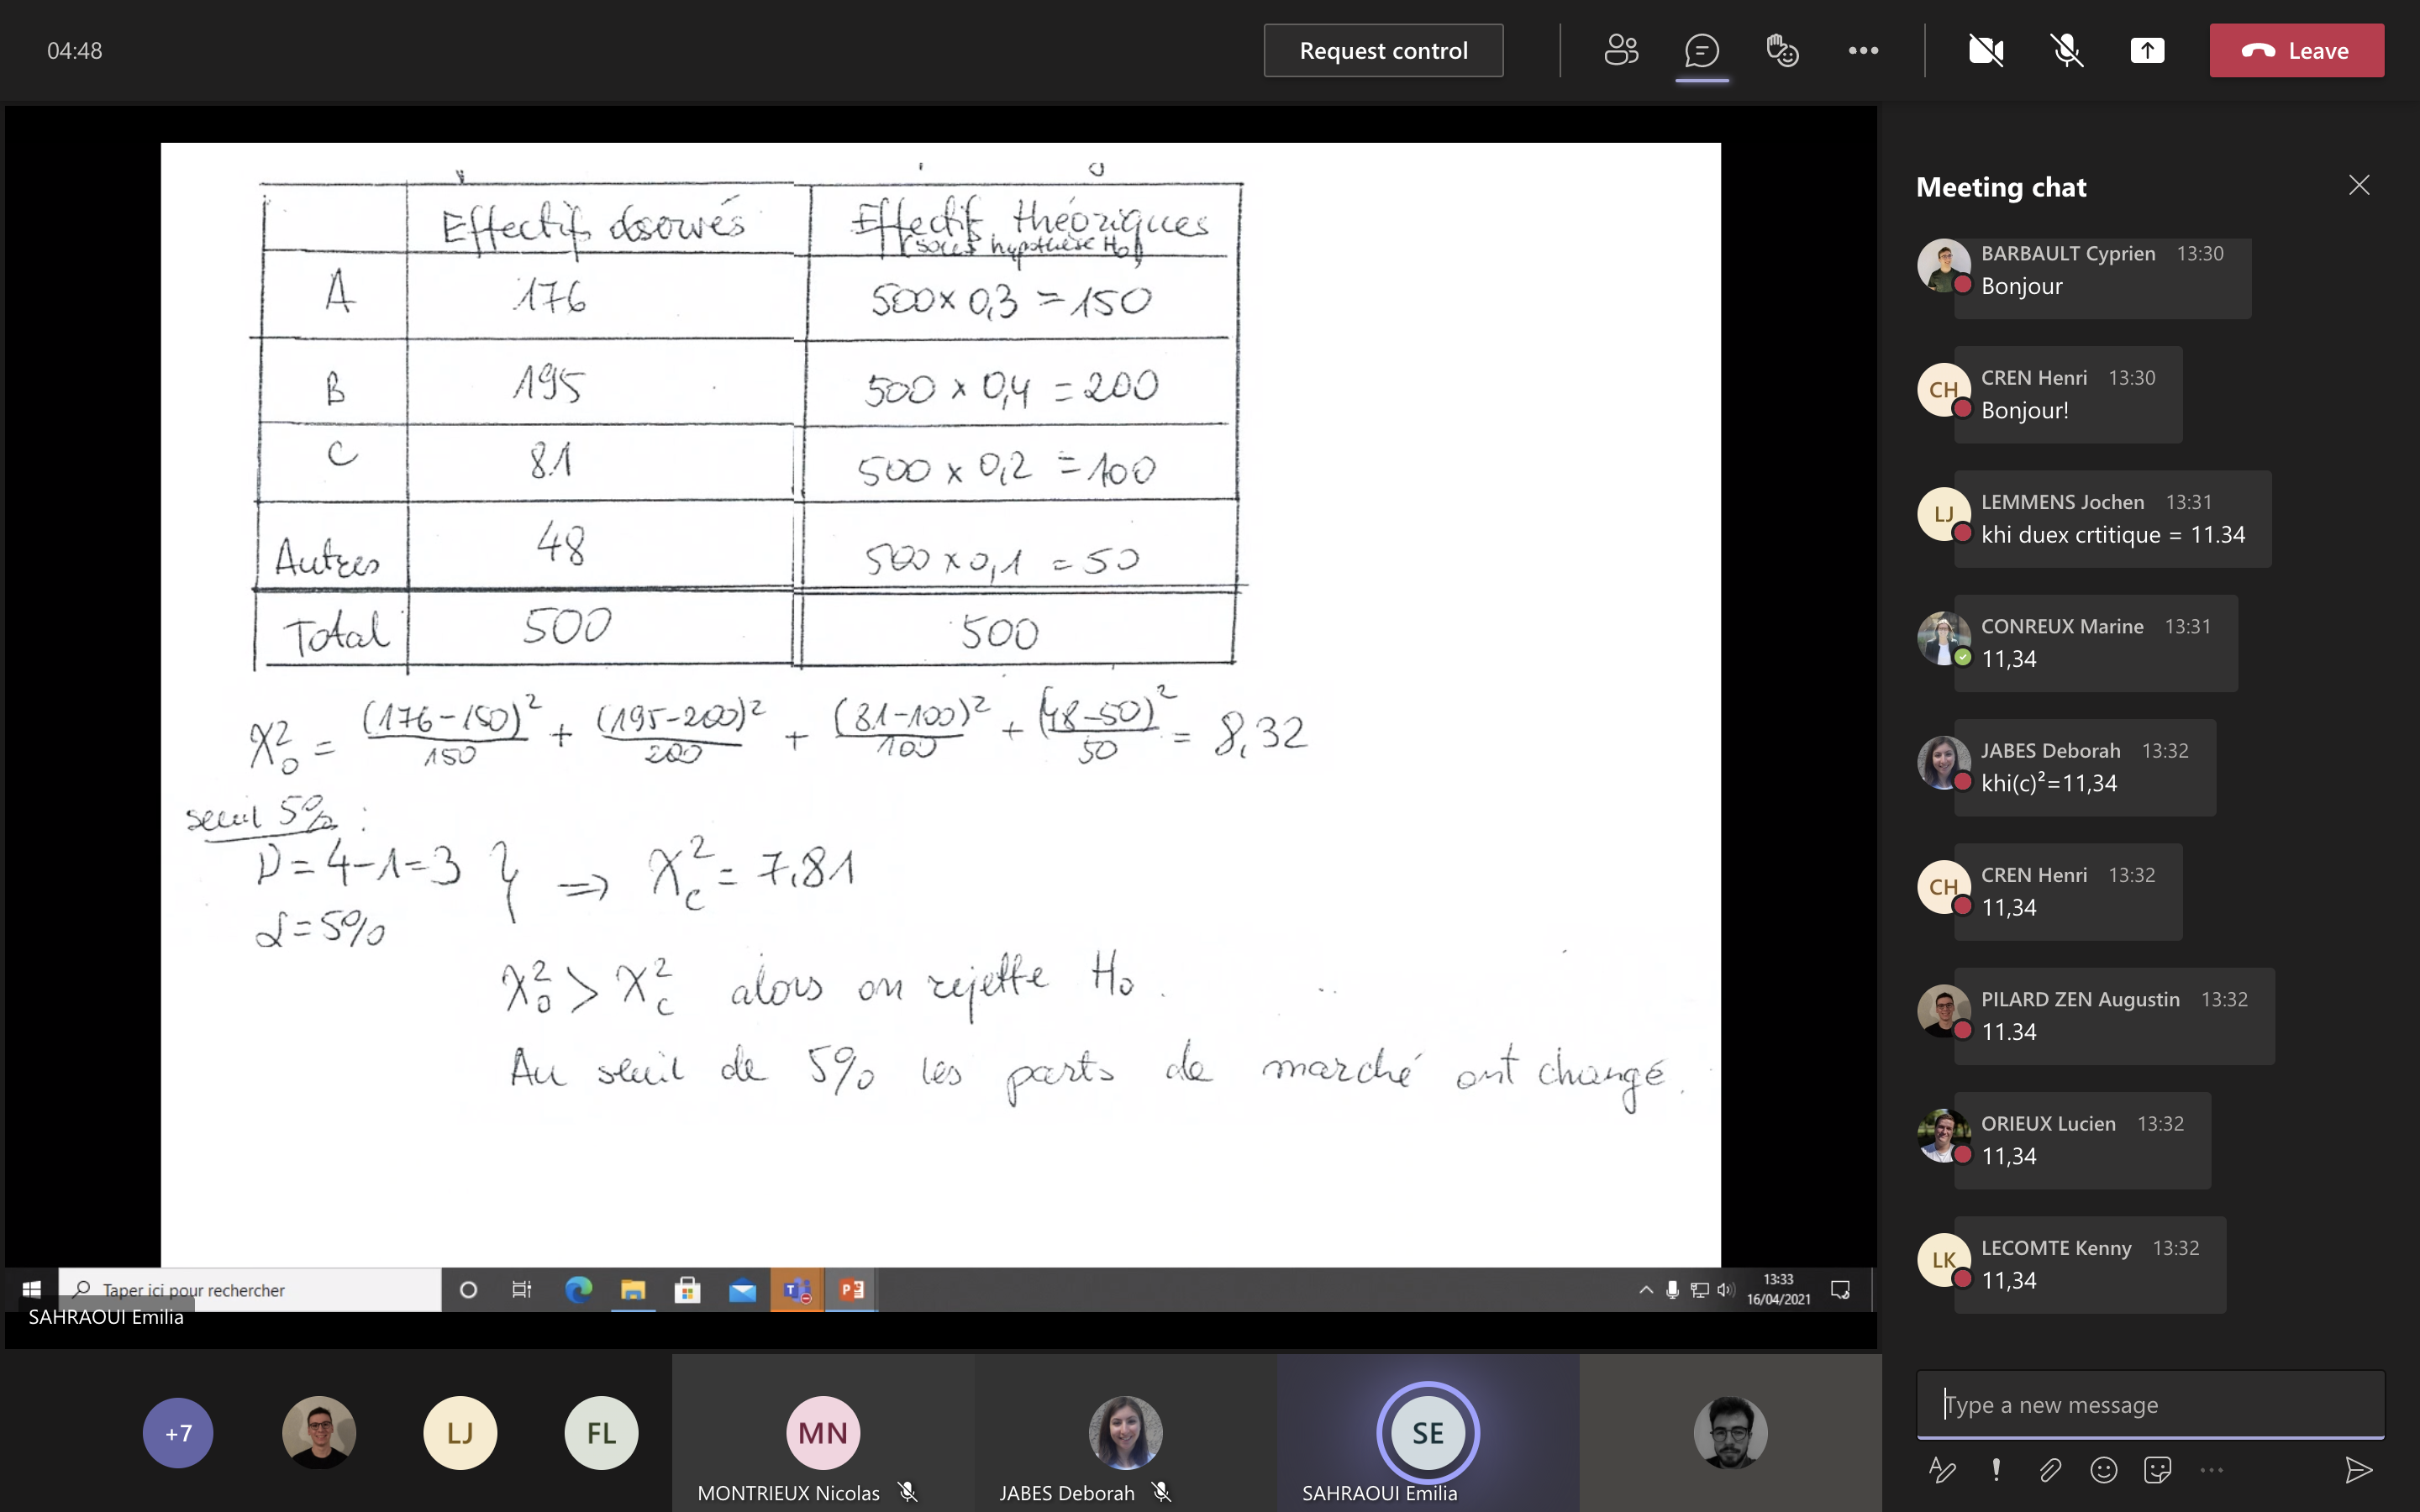 04:48
Request control
Leave
Effectifs observés
Effectifs théoriques
(sous hypothèse H0)
A 176 500 x 0,3 = 150
B 195 500 x 0,4 = 200
C 81 500 x 0,2 = 100
Autres 48 500 x 0,1 = 50
Total 500 500
χ²0 = (176-150)²/150 + (195-200)²/200 + (81-100)²/100 + (48-50)²/50 = 8,32
seuil 5% :
ν = 4-1 = 3 } ⇒ χ²c = 7,81
α = 5%
χ²0 > χ²c alors on rejette H0.
Au seuil de 5% les parts de marché ont changé.
Taper ici pour rechercher
13:33
16/04/2021
SAHRAOUI Emilia
+7
LJ
FL
MN
MONTRIEUX Nicolas
JABES Deborah
SE
SAHRAOUI Emilia
Meeting chat
BARBAULT Cyprien 13:30
Bonjour
CH
CREN Henri 13:30
Bonjour!
LJ
LEMMENS Jochen 13:31
khi duex crtitique = 11.34
CONREUX Marine 13:31
11,34
JABES Deborah 13:32
khi(c)²=11,34
CH
CREN Henri 13:32
11,34
PILARD ZEN Augustin 13:32
11.34
ORIEUX Lucien 13:32
11,34
LK
LECOMTE Kenny 13:32
11,34
Type a new message